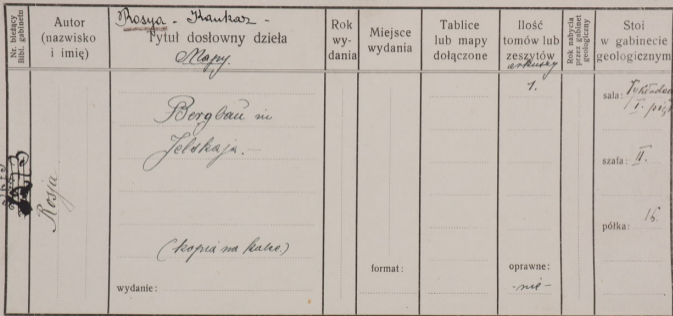 Nr. bieżący
Bibl. gabinetu
Autor
(nazwisko
i imię)
Rosya - Kaukaz -
Tytuł dosłowny dzieła
Mapy.
Rok
wy-
dania
Miejsce
wydania
Tablice
lub mapy
dołączone
Ilość
tomów lub
zeszytów
arkuszy
Rok nabycia
przez gabinet
geologiczny
Stoi
w gabinecie
geologicznym
Rosja
Bergbau in
Jelskaja.-
(kopia na kalce)
wydanie:
format:
1.
oprawne:
-nie-
sala:
I.
szafa: II.
półka: 16.